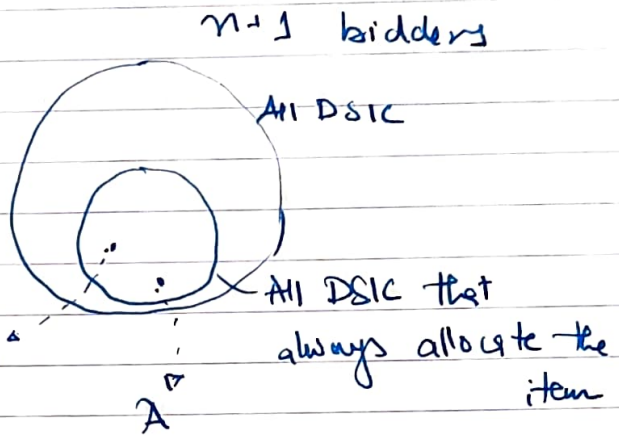 n+1 bidders
All DSIC
All DSIC that
always allocate the
item
A